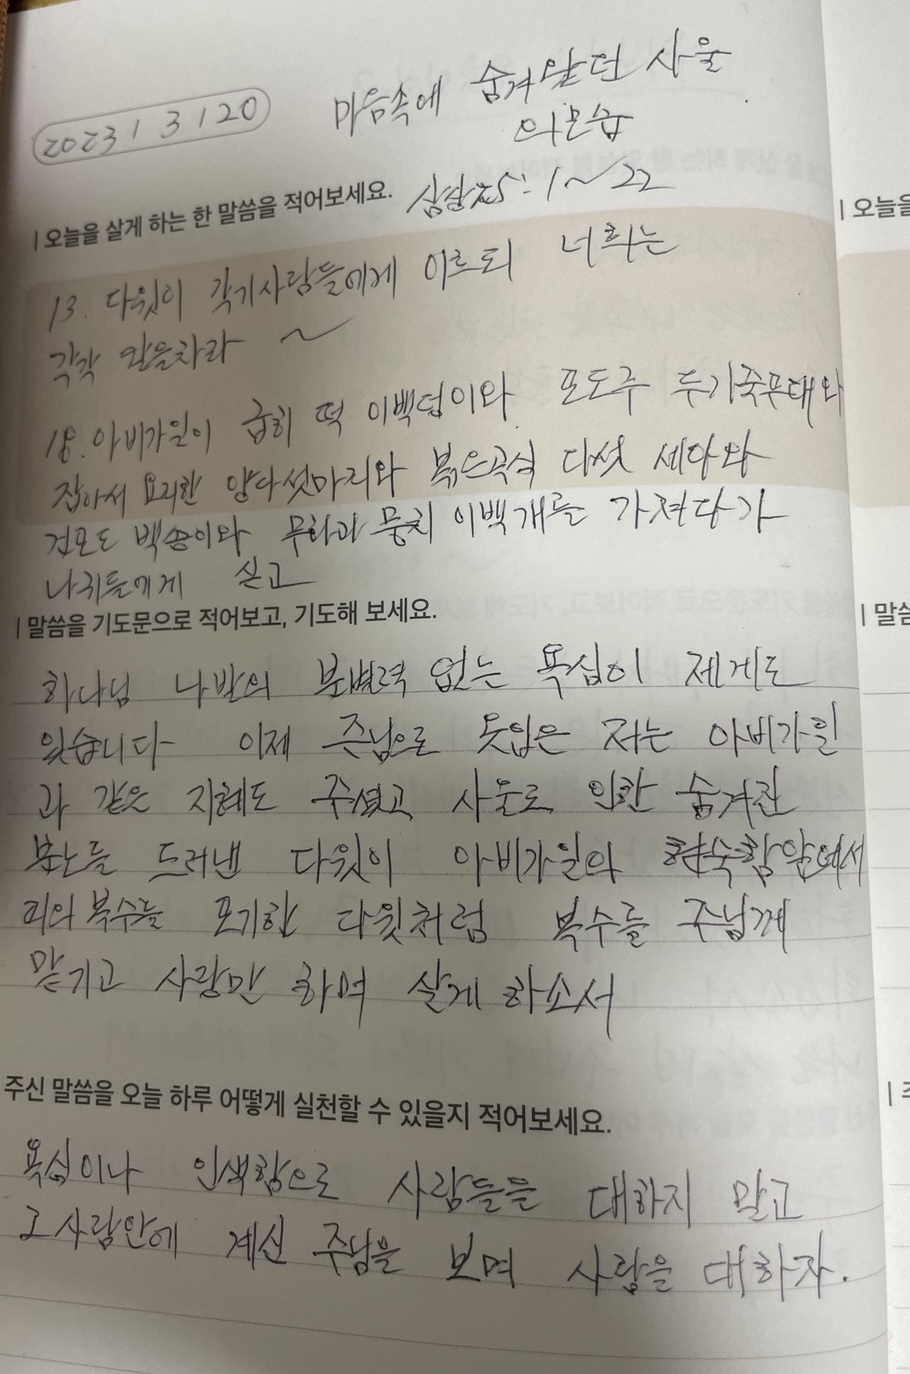 마음속에 숨겨왔던 사울
2023 | 3 | 20
의 모습
| 오늘을 살게 하는 한 말씀을 적어보세요. 삼상25:1~22
| 오늘을
13. 다윗이 각기사람들에게 이르되 너희는
각각 칼을차라 ~
18. 아비가일이 급히 떡 이백덩이와 포도주 두가죽부대와
잡아서 요리한 양다섯마리와 볶은곡식 다섯 세아와
건포도 백송이와 무화과 뭉치 이백개를 가져다가
나귀들에게 싣고
| 말씀을 기도문으로 적어보고, 기도해 보세요.
| 말씀
하나님 나발의 분별력 없는 욕심이 제게도
있습니다 이제 주님으로 옷입은 저는 아비가일
과 같은 지혜도 주셨고 사울로 인한 숨겨진
분노를 드러낸 다윗이 아비가일의 현숙함앞에서
의 복수를 포기한 다윗처럼 복수를 주님께
맡기고 사랑만 하며 살게 하소서
주신 말씀을 오늘 하루 어떻게 실천할 수 있을지 적어보세요.
| 주
욕심이나 인색함으로 사람들을 대하지 말고
그 사람안에 계신 주님을 보며 사람을 대하자.